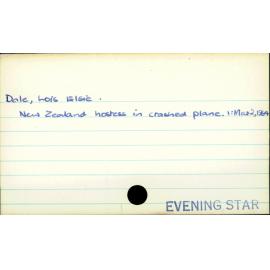 Dale, Lois Elsie.
New Zealand hostess in crashed plane. 1:Mar 2, 1964
EVENING STAR